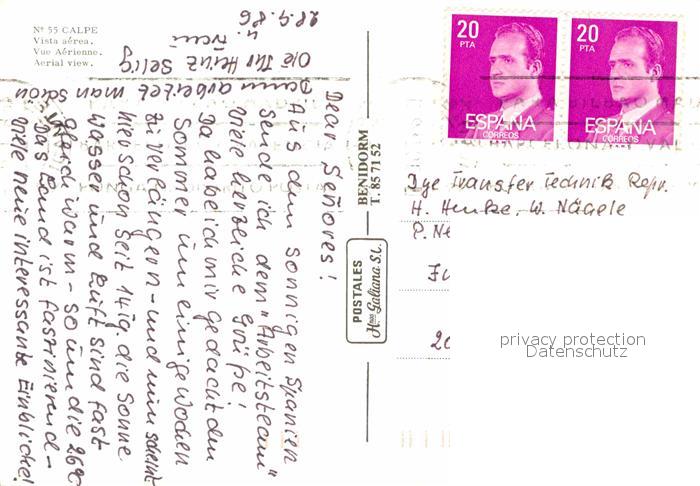 Nº 55 CALPE
Vista aérea.
Vue Aérienne.
Aerial view.
28.9.86
Dear Señores!
Aus dem sonnigen Spanien
sende ich dem "Arbeitsteam"
viele herzliche Grüße!
Da habe ich mir gedacht den
Sommer um einige Wochen
zu verlängern - und nun scheint
hier schon seit 14 Tg die Sonne.
Wasser und Luft sind fast
gleich warm - so um die 26°C
Das Land ist faszinierend -
viele neue interessante Einblicke!
Dann arbeitet man schon
Ihr Heinz Selig
u.
BENIDORM
T. 85 71 52
POSTALES
Hnos Galiana S.L.
20
PTA
ESPAÑA
CORREOS
20
PTA
ESPAÑA
CORREOS
Dye Transfer Technik Repr.
H. Henke, W. Nägele
P. Ne
20
privacy protection
Datenschutz